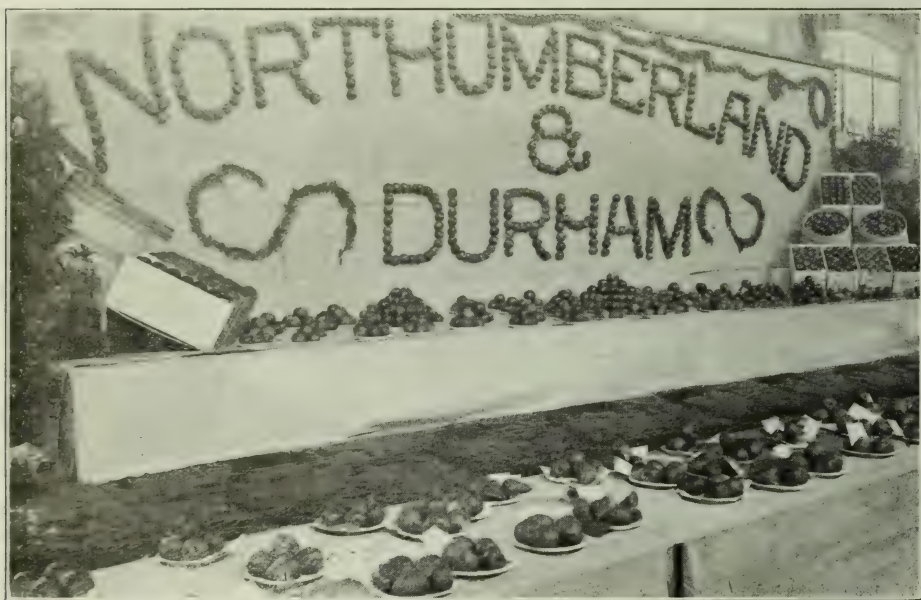 NORTHUMBERLAND
&
DURHAM